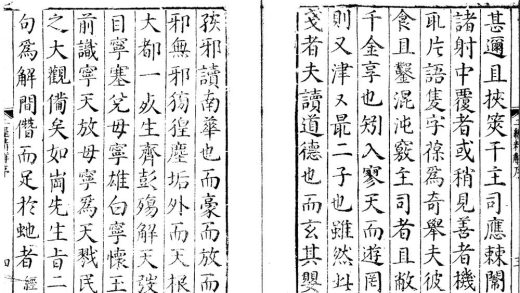 甚邇且挾筴干主司應棘闈
諸射中覆者或稍見善者機
耴片語隻字葆爲奇舉夫彼
食且鑿混沌竅主司者且敝
千金享也矧入寥天而遊罔
則又津又最二子也雖然此
戔者夫讀道德也而玄其嬰
孩邪讀南華也而豪而放而
邪無邪徜徨塵垢外而天根
大都一死生齊彭殤解天弢
目寧塞兌毋寧雄白寧懷玉
前識寧天放毋寧爲天戮民
之大觀備矣如崗先生旨二
句爲解間僭而足於虵者經
四